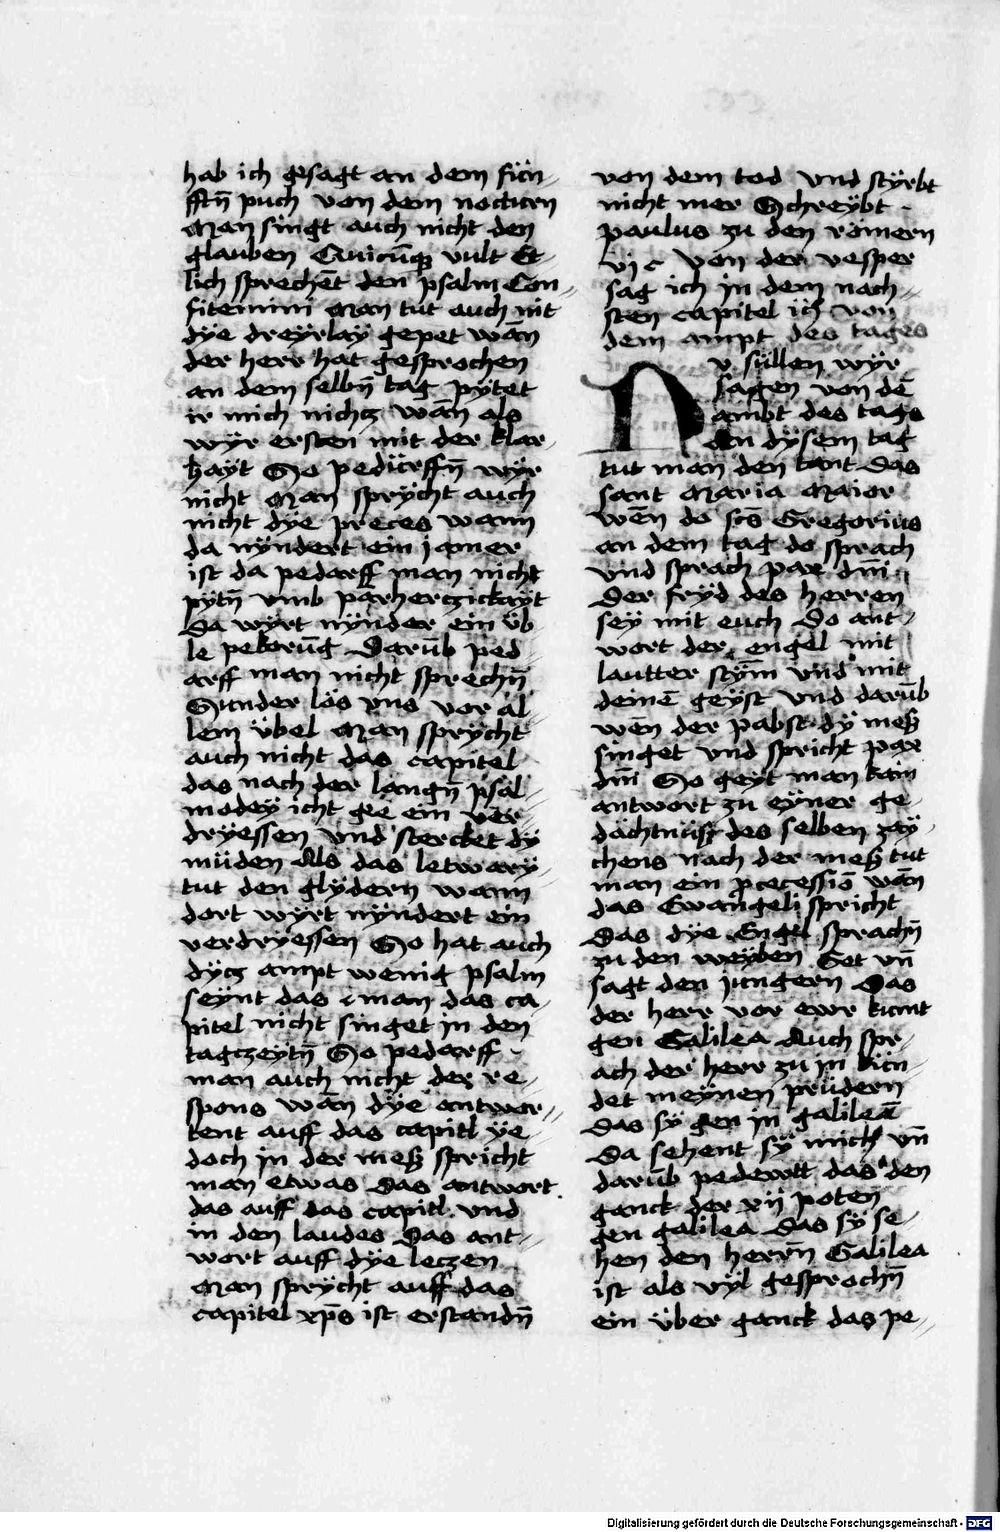 hab ich gesagt an dem fün-
fftñ puch von dem nocturn
Man singt auch nicht den
glauben Quicūqꝫ vult Et-
lich sprechēt den psalm Con-
fitemini Man tut auch nit
dÿe dreÿrlaÿ gepet wān
der herr hat gesprochen
an dem selbñ tag pÿtet
ir mich nichcz wān als
wÿr ersten mit der klar-
hayt So pedürffñ wÿr
nicht Man sprÿcht auch
nicht dÿe preces wann
da nÿndert ein jamer
ist da pedarff man nicht
pÿtñ vmb parherczickaÿt
Da wÿrt nÿnder ein üb-
le pekorūg Darūb ped-
arff man nicht sprechñ
Sunder lös vns vor al-
lem übel Man sprÿcht
auch nicht das capitel
das nach der langñ psal-
modey icht gee ein ver-
drÿessen vnd stercket dÿ
müden Als das letwarÿ-
tut den glÿdern wann
dort wÿrt nÿndert ein
verdrÿessen So hat auch
dÿcz ampt wenig psalm
seÿnt das man das ca-
pitel nicht singet in den
tagczeÿtñ So pedarff
man auch nicht der re-
spons wān dÿe antwor-
tent auff das capitl ÿe-
doch in der meß spricht
man etwas Das antwort
das auff das capitl vnd
in den laudes Das ant-
wort auff dÿe leczen
Man sprÿcht auff das
capitel xp̄s ist erstandñ
von dem tod vnd stÿrbt
nicht mer Schreÿbt
paulus zu den römern
vj c von der vesper
sag ich in dem nach-
sten capitel ich von
dem ampt des tages
Nv süllen wÿr
sagen von dē
ambt des tags
An dÿsem tag
tut man den tant das
sant Maria Maior
wēn do scs̄ Gregorius
an dem tag do sprach
vnd sprach pax dm̄i
Der frÿd des herren
seÿ mit euch Do ant-
wort der engel mit
lautter stÿm̄ vnd mit
deinē geÿst vnd darūb
wēn der pabst dÿ meß
singet vnd spricht pax
dm̄i So geÿt man kain
antwort zu eÿner ge-
dächtnüß des selben zaÿ-
chens nach der meß tut
man ein processiō wān
das Ewangeli spricht
Das dÿe Engel sprachñ
zu den weÿben Get vñ
sagt den jungern Das
der herr vor ewr kumt
gen Galilea Auch spr-
ach der herr zu in kün-
det meÿnen prüdern
Das sÿ gen in galileā
Da sehent sÿ mich vñ
darūb pedewtt das den
ganck der xij poten
gen galilea Das sÿ se-
hen den herrñ Galilea
ist als vÿl gesprochñ
ein über ganck das pe-
Digitalisierung gefördert durch die Deutsche Forschungsgemeinschaft - DFG